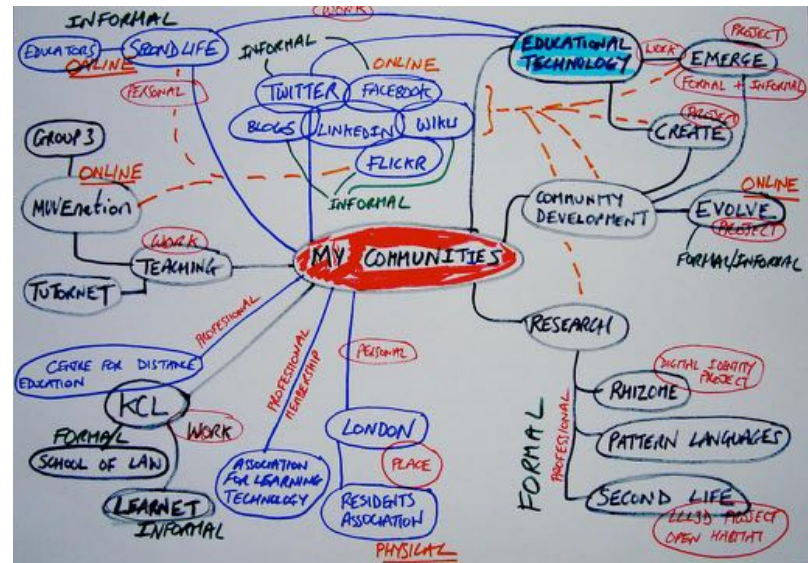 INFORMAL
EDUCATORS
SECOND LIFE
ONLINE
PERSONAL
WORK
INFORMAL
ONLINE
TWITTER
FACEBOOK
BLOGS
LINKEDIN
WIKIS
FLICKR
INFORMAL
EDUCATIONAL
TECHNOLOGY
WORK
PROJECT
EMERGE
FORMAL + INFORMAL
PROJECT
CREATE
COMMUNITY
DEVELOPMENT
ONLINE
EVOLVE
PROJECT
FORMAL/INFORMAL
GROUP 3
ONLINE
MUVEnation
WORK
TEACHING
TUTORNET
MY COMMUNITIES
PROFESSIONAL
CENTRE FOR DISTANCE
EDUCATION
KCL
WORK
FORMAL
SCHOOL OF LAW
LEARNET
INFORMAL
PROFESSIONAL
MEMBERSHIP
ASSOCIATION
FOR LEARNING
TECHNOLOGY
PERSONAL
LONDON
PLACE
RESIDENTS
ASSOCIATION
PHYSICAL
RESEARCH
FORMAL
PROFESSIONAL
DIGITAL IDENTITY
PROJECT
RHIZOME
PATTERN LANGUAGES
SECOND LIFE
LLL3D PROJECT
OPEN HABITAT